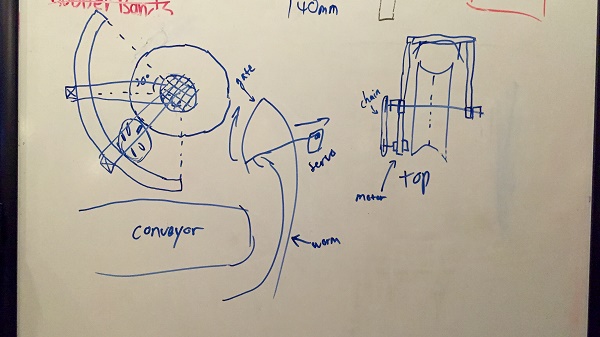 140mm
gate
chain
servo
30°
top
motor
conveyor
worm